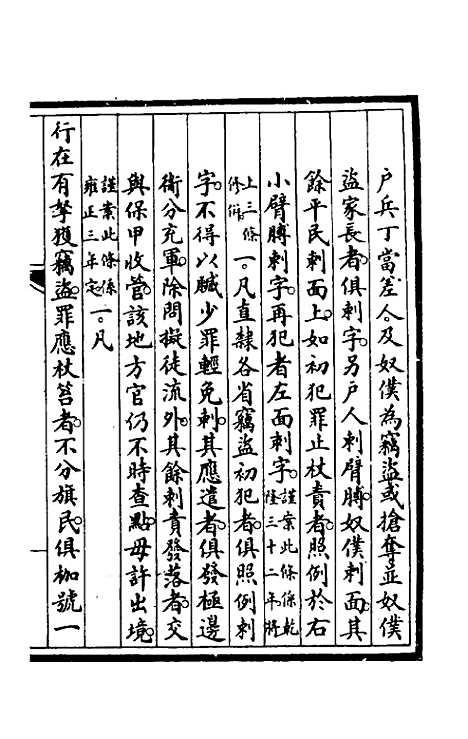 戶兵丁當差人及奴僕為竊盜或搶奪並奴僕
盜家長者俱刺字另戶人刺臂膊奴僕刺面其
餘平民刺面上如初犯罪止杖責者照例於右
小臂膊刺字再犯者左面刺字謹案此條係乾隆三十二年將
上三條修併一凡直隸各省竊盜初犯者俱照例刺
字不得以贓少罪輕免刺其應遣者俱發極邊
衛分充軍除問擬徒流外其餘刺責發落者交
與保甲收管該地方官仍不時查點毋許出境
謹案此條係雍正三年定一凡
行在有拏獲竊盜罪應杖笞者不分旗民俱枷號一